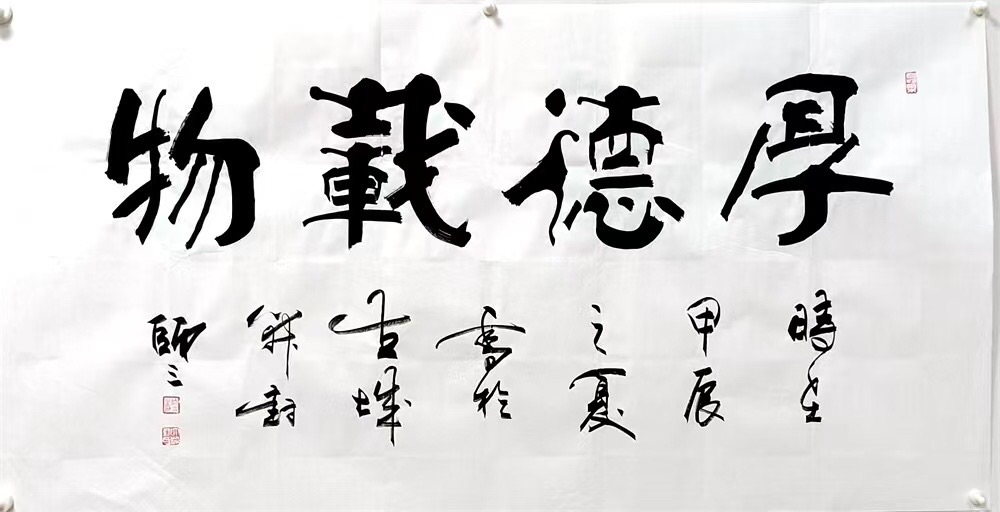 厚德載物
時在
甲辰
之夏
書於
古城
開封
師三